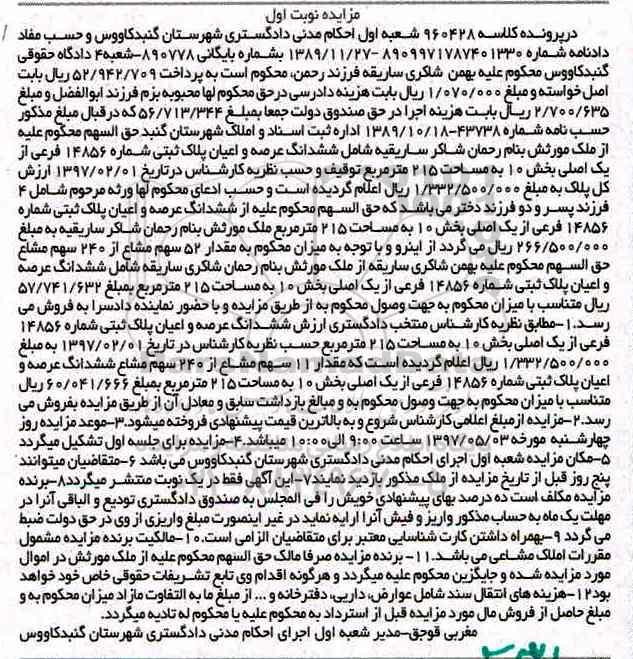 مزایده نوبت اول
درپرونده کلاسه ۹۶۰۴۲۸ شعبه اول احکام مدنی دادگستری شهرستان گنبدکاووس و حسب مفاد
دادنامه شماره ۸۹۰۹۹۷۱۷۸۷۴۰۱۳۳۰ -۱۳۸۹/۱۱/۲۷ بشماره بایگانی ۸۹۰۷۷۸-شعبه۴ دادگاه حقوقی
گنبدکاووس محکوم علیه بهمن شاکری ساریقه فرزند رحمن، محکوم است به پرداخت ۵۲/۹۴۲/۷۰۹ ریال بابت
اصل خواسته و مبلغ ۱/۰۷۰/۰۰۰ ریال بابت هزینه دادرسی درحق محکوم لها محبوبه بزم فرزند ابوالفضل و مبلغ
۲/۷۰۰/۶۳۵ ریال بابت هزینه اجرا در حق صندوق دولت جمعا بمبلغ ۵۶/۷۱۳/۳۴۴ که درقبال مبلغ مذکور
حسب نامه شماره ۴۳۷۳۸-۱۳۸۹/۱۰/۱۸ اداره ثبت اسناد و املاک شهرستان گنبد حق السهم محکوم علیه
از ملک مورثش بنام رحمان شاکر ساریقیه شامل ششدانگ عرصه و اعیان پلاک ثبتی شماره ۱۴۸۵۶ فرعی از
یک اصلی بخش ۱۰ به مساحت ۲۱۵ مترمربع توقیف و حسب نظریه کارشناس درتاریخ ۱۳۹۷/۰۲/۰۱ ارزش
کل پلاک به مبلغ ۱/۳۳۲/۵۰۰/۰۰۰ ریال اعلام گردیده است و حسب ادعای محکوم لها ورثه مرحوم شامل ۴
فرزند پسر و دو فرزند دختر می باشد که حق السهم محکوم علیه از ششدانگ عرصه و اعیان پلاک ثبتی شماره
۱۴۸۵۶ فرعی از یک اصلی بخش ۱۰ به مساحت ۲۱۵ مترمربع ملک مورثش بنام رحمان شاکر ساریقیه به مبلغ
۲۶۶/۵۰۰/۰۰۰ ریال می گردد از اینرو و با توجه به میزان محکوم به مقدار ۵۲ سهم مشاع از ۲۴۰ سهم مشاع
حق السهم محکوم علیه بهمن شاکری ساریقه از ملک مورثش بنام رحمان شاکری ساریقه شامل ششدانگ عرصه
و اعیان پلاک ثبتی شماره ۱۴۸۵۶ فرعی از یک اصلی بخش ۱۰ به مساحت ۲۱۵ مترمربع بمبلغ ۵۷/۷۴۱/۶۳۲
ریال متناسب با میزان محکوم به جهت وصول محکوم به از طریق مزایده و با حضور نماینده دادسرا به فروش می
رسد.۱-مطابق نظریه کارشناس منتخب دادگستری ارزش ششدانگ عرصه و اعیان پلاک ثبتی شماره ۱۴۸۵۶
فرعی از یک اصلی بخش ۱۰ به مساحت ۲۱۵ مترمربع حسب نظریه کارشناس در تاریخ ۱۳۹۷/۰۲/۰۱ به مبلغ
۱/۳۳۲/۵۰۰/۰۰۰ ریال اعلام گردیده است که مقدار ۱۱ سهم مشاع از ۲۴۰ سهم مشاع ششدانگ عرصه و
اعیان پلاک ثبتی شماره ۱۴۸۵۶ فرعی از یک اصلی بخش ۱۰ به مساحت ۲۱۵ مترمربع بمبلغ ۶۰/۰۴۱/۶۶۶ ریال
متناسب با میزان محکوم به جهت وصول محکوم به و مبالغ بازداشت سابق و معادل آن از طریق مزایده بفروش می
رسد.۲-مزایده از مبلغ اعلامی کارشناس شروع و به بالاترین قیمت پیشنهادی فروخته میشود.۳-موعد مزایده روز
چهارشنبه مورخه ۱۳۹۷/۰۵/۰۳ ساعت ۹:۰۰ الی ۱۰:۰۰ میباشد.۴-مزایده برای جلسه اول تشکیل میگردد
۵-مکان مزایده شعبه اول اجرای احکام مدنی دادگستری شهرستان گنبدکاووس می باشد ۶-متقاضیان میتوانند
پنج روز قبل از تاریخ مزایده از ملک مذکور بازدید نمایند۷-این آگهی فقط در یک نوبت منتشر میگردد۸-برنده
مزایده مکلف است ده درصد بهای پیشنهادی خویش را فی المجلس به صندوق دادگستری تودیع و الباقی آنرا در
مهلت یک ماه به حساب مذکور واریز و فیش آنرا ارایه نماید در غیر اینصورت مبلغ واریزی از وی در حق دولت ضبط
می گردد ۹-بهمراه داشتن کارت شناسایی معتبر برای متقاضیان الزامی است.۱۰-مالکیت برنده مزایده مشمول
مقررات املاک مشاعی می باشد.۱۱- برنده مزایده صرفا مالک حق السهم محکوم علیه از ملک مورثش در اموال
مورد مزایده شده و جایگزین محکوم علیه میگردد و هرگونه اقدام وی تابع تشریفات حقوقی خاص خود خواهد
بود۱۲-هزینه های انتقال سند شامل عوارض، دارایی، دفترخانه و ... از مبلغ ما به التفاوت مازاد میزان محکوم به و
مبلغ حاصل از فروش مال مورد مزایده قبل از استرداد به محکوم علیه یا محکوم له تادیه میگردد.
مغربی قوجق-مدیر شعبه اول اجرای احکام مدنی دادگستری شهرستان گنبدکاووس